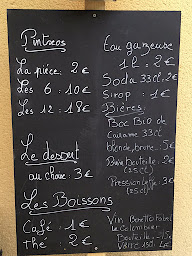 Pintxos
La pièce: 2€
Les 6: 10€
Les 12: 18€
Le dessert
au choix: 3€
Les Boissons
Café: 1€
Thé: 2€
Eau gazeuse
1L: 2€
Soda 33cl: 2€
Sirop: 1€
Bières:
Boc Bio de
33cl
blonde, brune: 5€
bouteille: 2€
(25cl)
Pression: 3€
(25cl)
Vin
Le Colombier
Bouteille: 15€